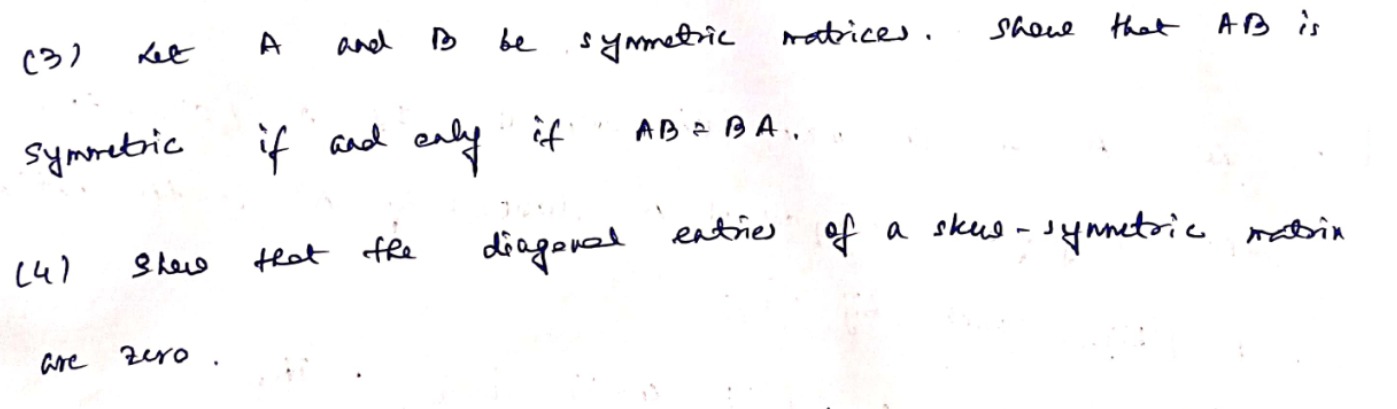 (3) Let A and B be symmetric matrices. Show that AB is
symmetric if and only if AB = BA.
(4) Show that the diagonal entries of a skew-symmetric matrix
are zero.